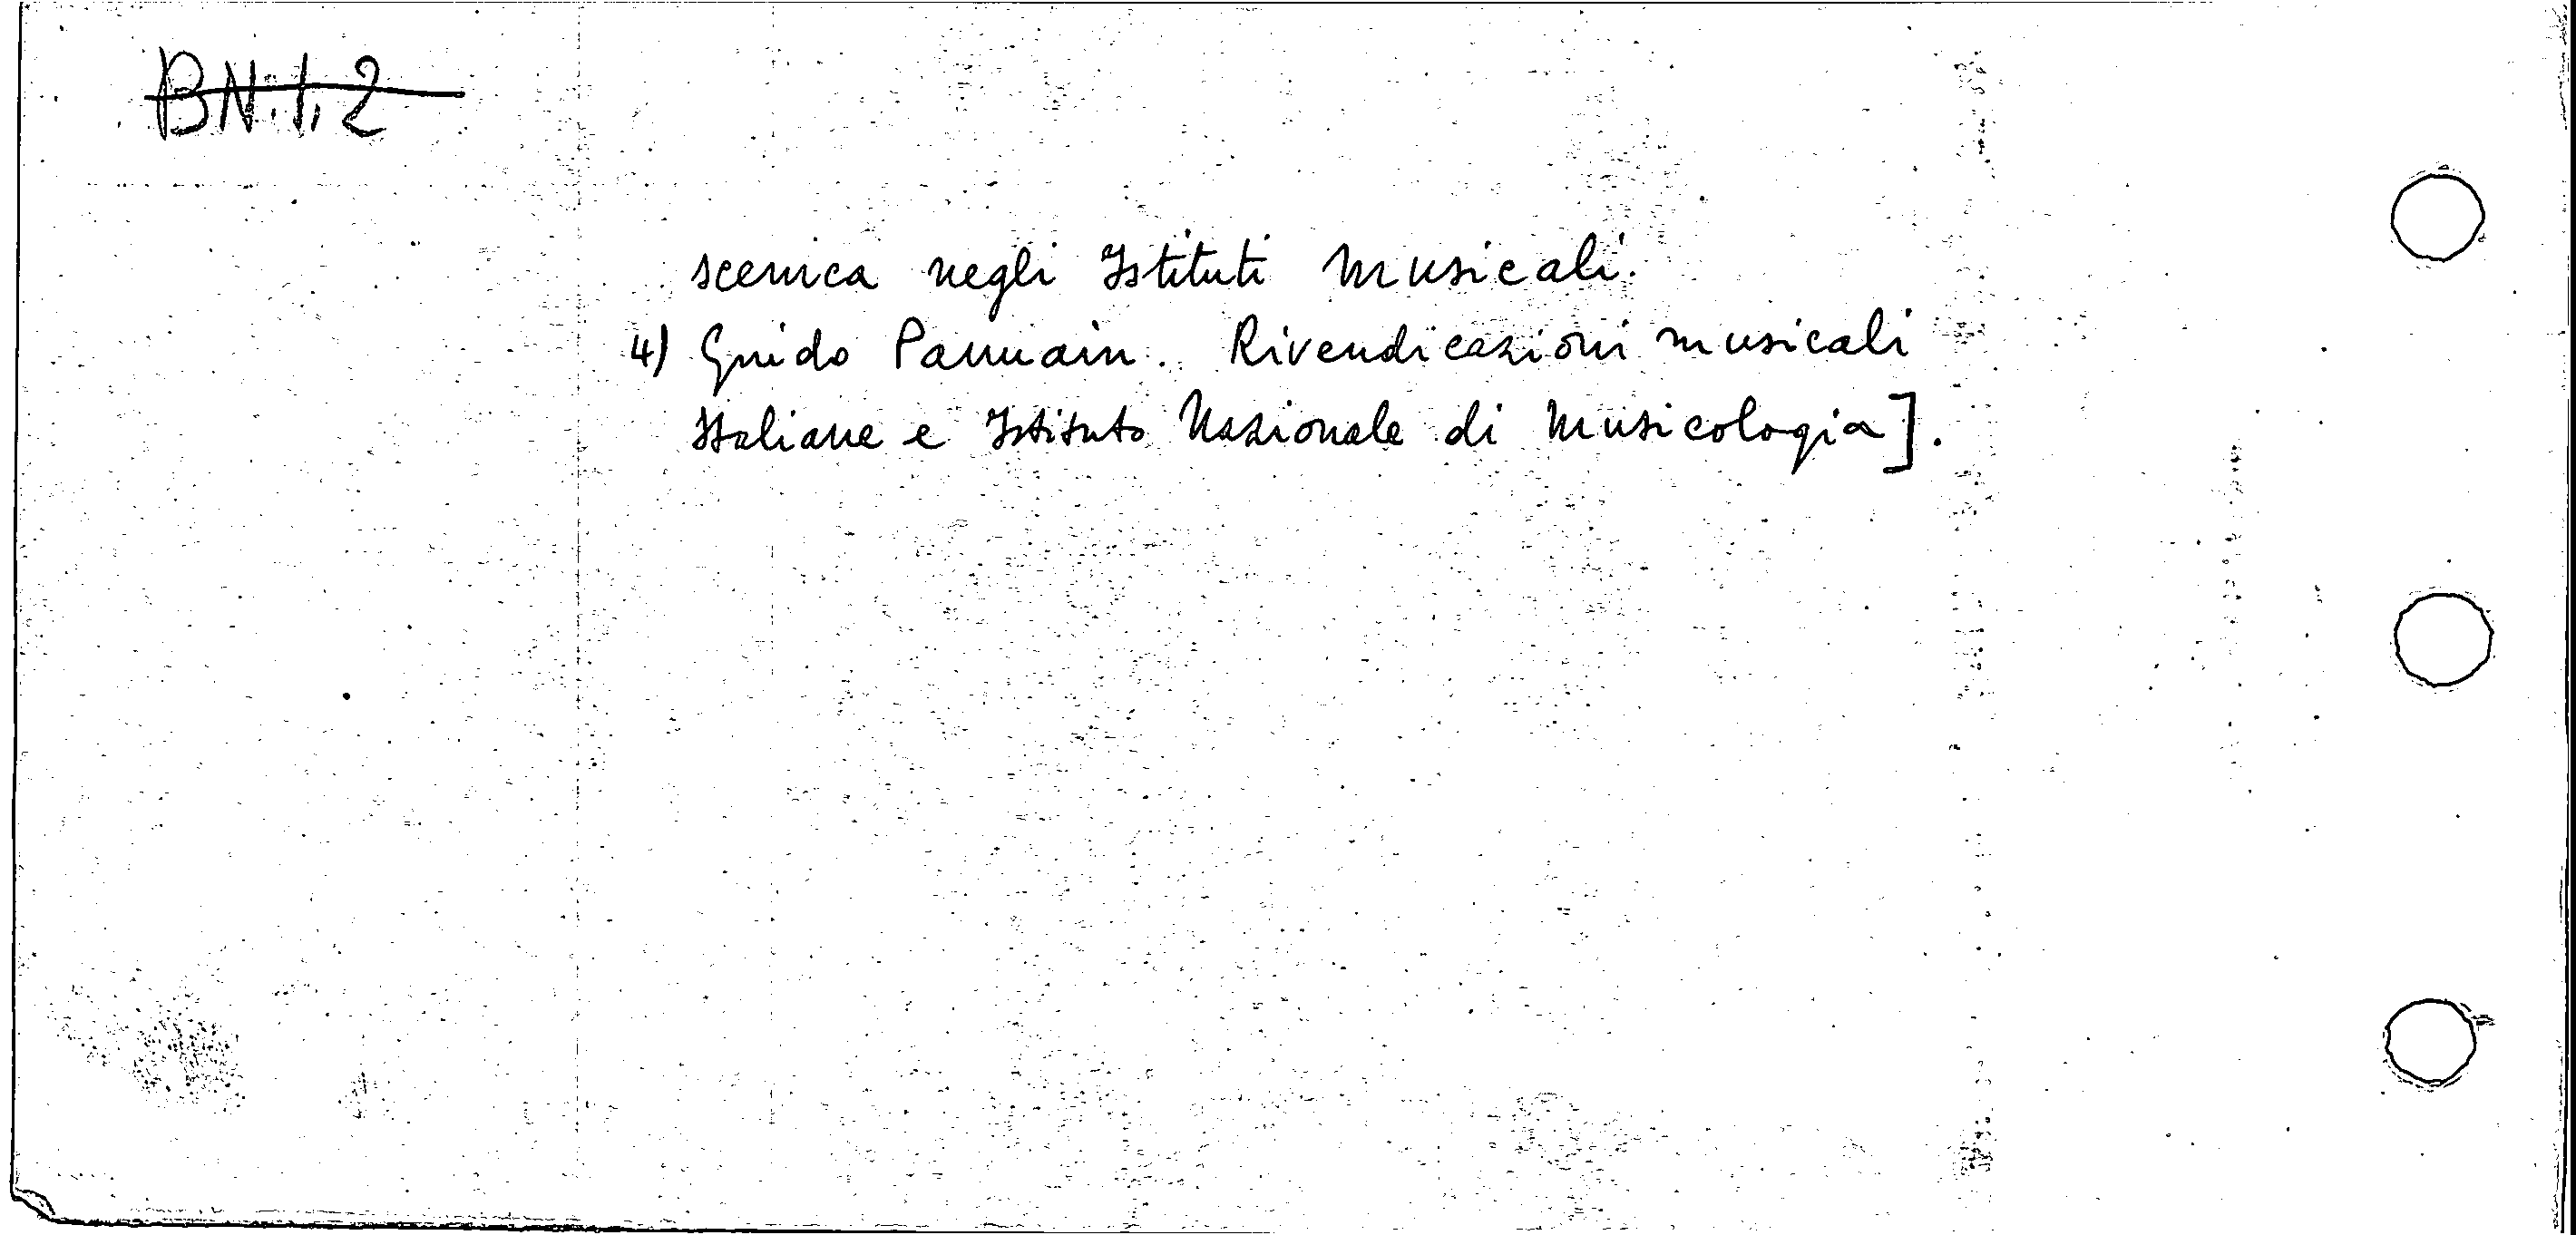 BN.1.2
scenica negli Istituti Musicali.
4) Guido Pannain. Rivendicazioni musicali
Italiane e Istituto Nazionale di Musicologia].